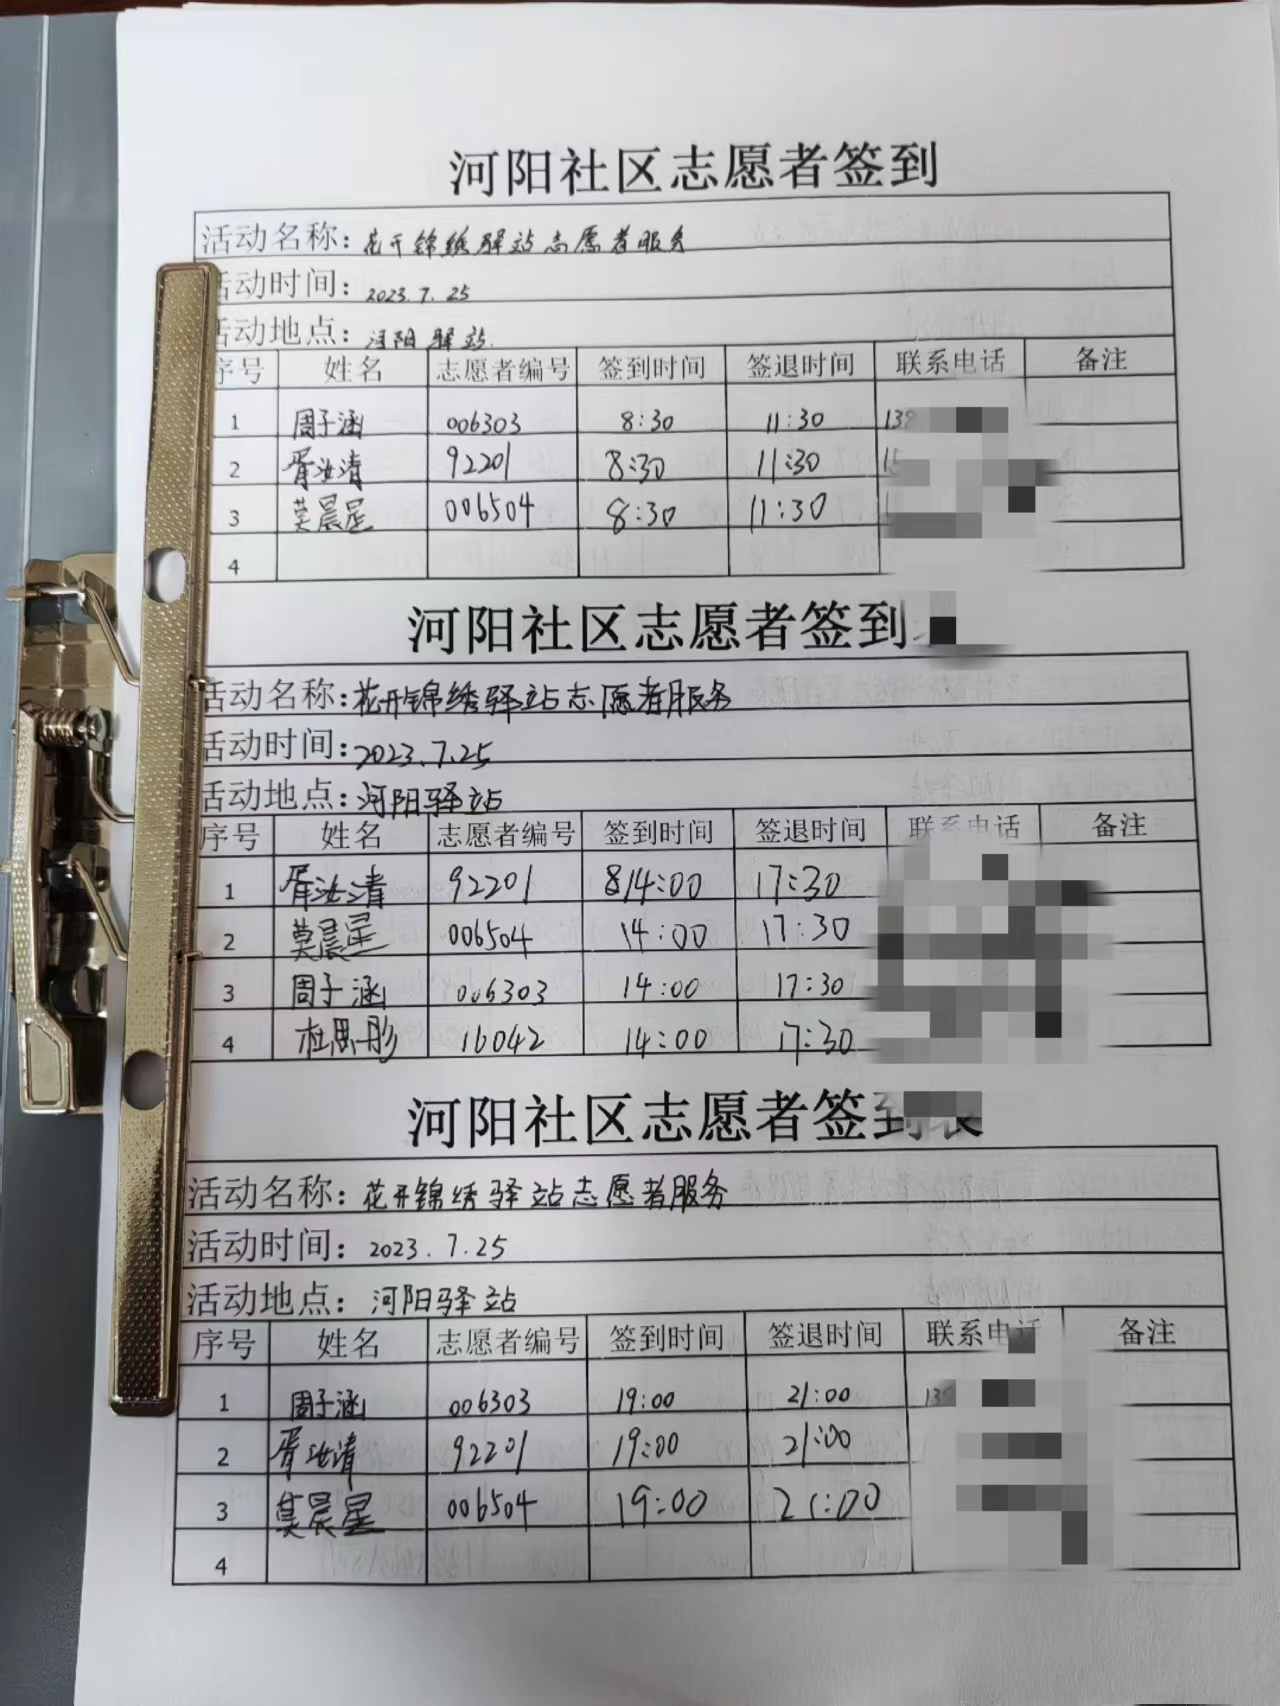 河阳社区志愿者签到
活动名称：花开锦绣驿站志愿者服务
活动时间：2023.7.25
活动地点：河阳驿站.
序号 姓名 志愿者编号 签到时间 签退时间 联系电话 备注
1 周子涵 006303 8:30 11:30 139
2 胥汝清 92201 8:30 11:30
3 莫晨星 006504 8:30 11:30
4
河阳社区志愿者签到
活动名称：花开锦绣驿站志愿者服务
活动时间：2023.7.25
活动地点：河阳驿站
序号 姓名 志愿者编号 签到时间 签退时间 联系电话 备注
1 胥汝清 92201 814:00 17:30
2 莫晨星 006504 14:00 17:30
3 周子涵 006303 14:00 17:30
4 杜思彤 16042 14:00 17:30
河阳社区志愿者签到表
活动名称：花开锦绣驿站志愿者服务
活动时间：2023.7.25
活动地点：河阳驿站
序号 姓名 志愿者编号 签到时间 签退时间 联系电话 备注
1 周子涵 006303 19:00 21:00 139
2 胥汝清 92201 19:00 21:00
3 莫晨星 006504 19:00 21:00
4